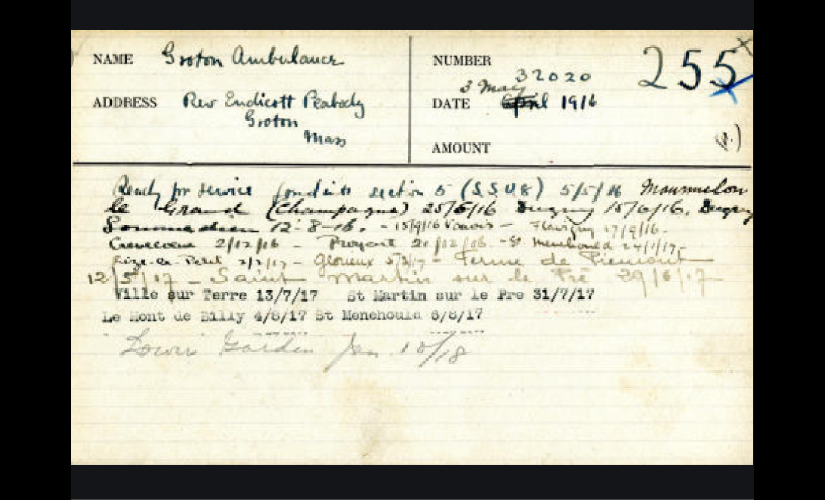 NAME Groton Ambulance
ADDRESS Rev Endicott Peabody
Groton
Mass
NUMBER 32020
3 May
DATE April 1916
AMOUNT
255
Ready for service section 5 (S.S.U 8) 5/5/16 Mourmelon
le Grand (Champagne) 25/5/16 Dugny 15/6/16. Dugny
12-8-16. - 15/9/16 - 17/9/16 -
Crevecoeur 2/12/16 - 20/12/16 - St Menehould 24/1/17 -
Petit 2/2/17 - Glorieux - Ferme de Piemont
12/5/17 - Saint Martin sur le Pré 29/6/17
Ville sur Terre 13/7/17 St Martin sur le Pre 31/7/17
Le Mont de Billy 4/8/17 St Menehould 8/8/17
Lower Garden Jan 18/18